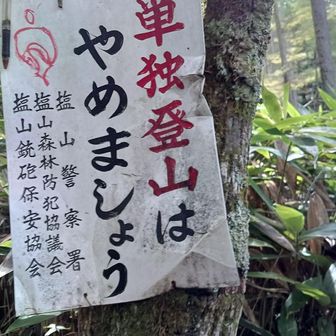 単独登山は
やめましょう
塩山警察署
塩山森林防犯協議会
塩山銃砲保安協会